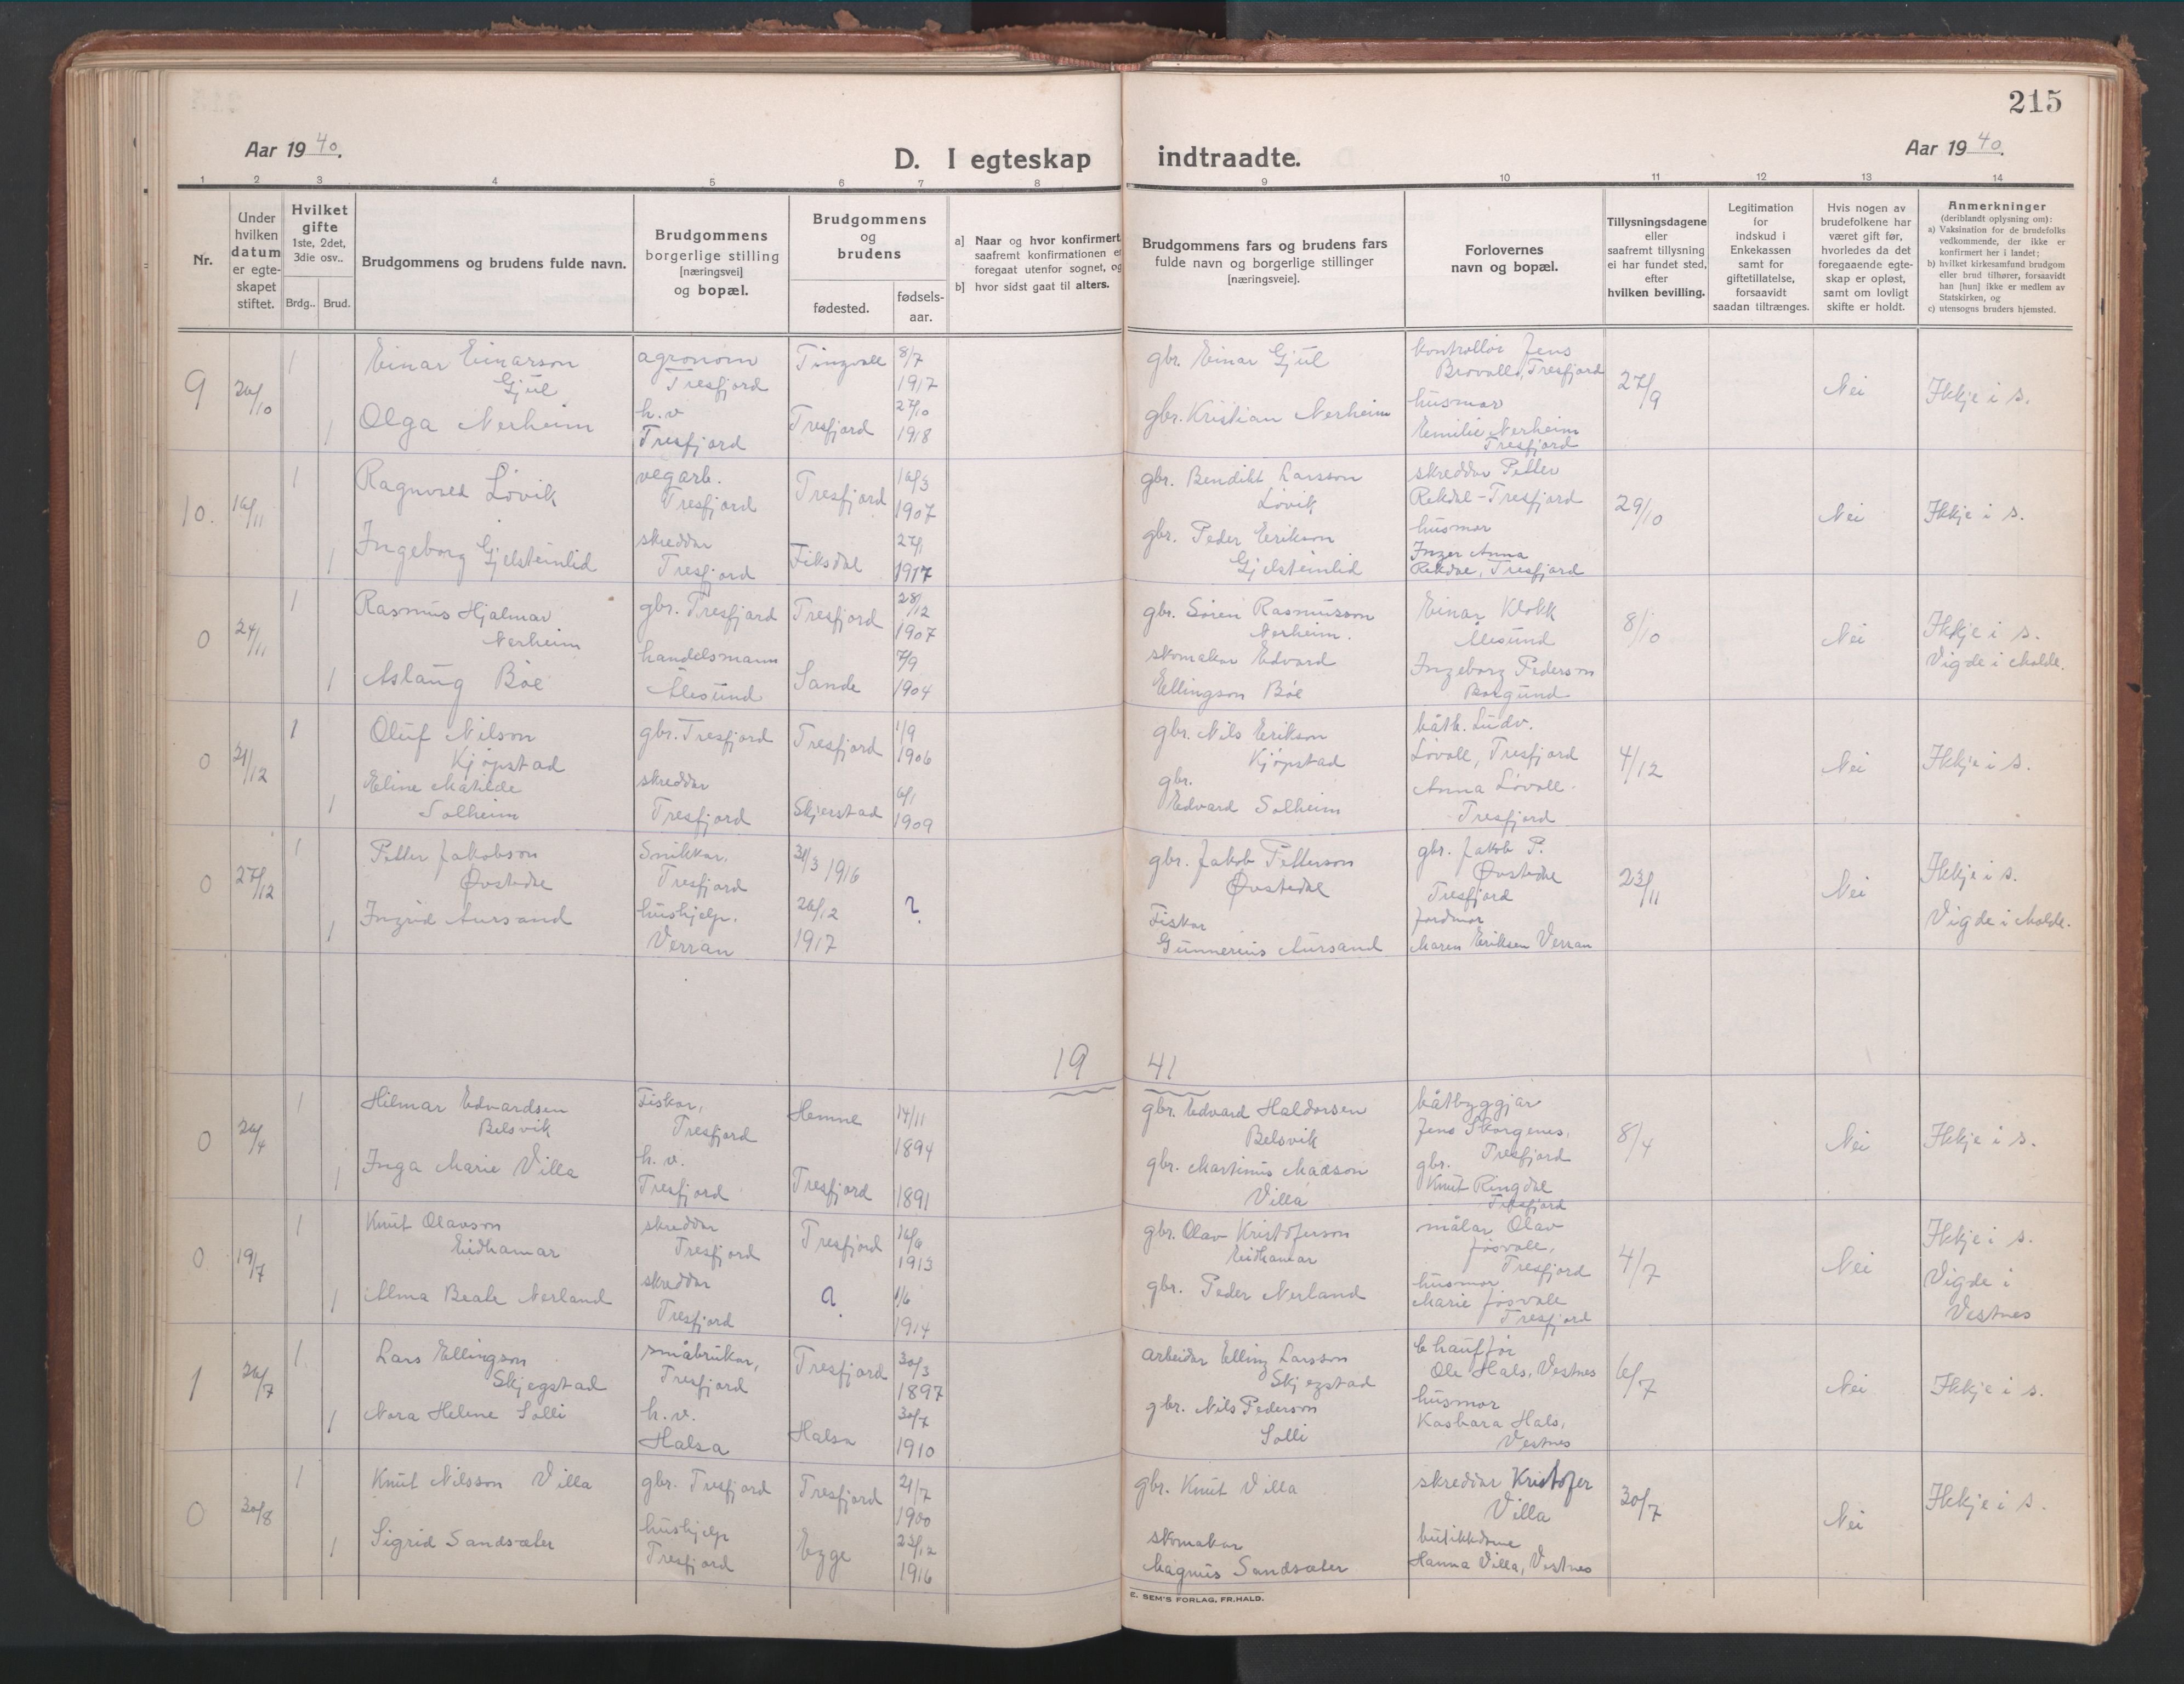 215
Aar 1940.
D. I egteskap indtraadte.
Aar 1940.
1 2 3 4 5 6 7 8 9 10 11 12 13 14
Nr.
Under hvilken datum er egte-skapet stiftet.
Hvilket gifte 1ste, 2det, 3die osv..
Brdg.. Brud.
Brudgommens og brudens fulde navn.
Brudgommens borgerlige stilling [næringsvei] og bopæl.
Brudgommens og brudens
fødested.
fødsels-aar.
a] Naar og hvor konfirmert
saafremt konfirmationen er
foregaat utenfor sognet, og
b] hvor sidst gaat til alters.
Brudgommens fars og brudens fars
fulde navn og borgerlige stillinger
[næringsveie].
Forlovernes
navn og bopæl.
Tillysningsdagene
eller
saafremt tillysning
ei har fundet sted,
efter
hvilken bevilling.
Legitimation
for
indskud i
Enkekassen
samt for
giftetillatelse,
forsaavidt
saadan tiltrænges.
Hvis nogen av
brudefolkene har
været gift før,
hvorledes da det
foregaaende egte-
skap er opløst,
samt om lovligt
skifte er holdt.
Anmerkninger
(deriblandt oplysning om):
a) Vaksination for de brudefolks
vedkommende, der ikke er
konfirmert her i landet;
b) hvilket kirkesamfund brudgom
eller brud tilhører, forsaavidt
han [hun] ikke er medlem av
Statskirken, og
c) utensogns bruders hjemsted.
9 26/10 1 Einar Einarson Gjul agronom Tresfjord Tingvoll 8/7 1917 gbr. Einar Gjul kontrollør Jens Brovoll, Tresfjord 27/9 Nei Ikkje i s.
1 Olga Nerheim h.v Tresfjord Tresfjord 27/10 1918 gbr. Kristian Nerheim husmor Emilie Nerheim Tresfjord
10. 16/11 1 Ragnvald Løvik vegarb. Tresfjord Tresfjord 16/3 1907 gbr. Bendikt Larsson Løvik skreddar Petter Rekdal - Tresfjord 29/10 Nei Ikkje i s.
1 Ingeborg Gjelsteinlid skreddar Tresfjord Fiksdal 27/1 1917 gbr. Peder Erikson Gjelsteinlid husmor Inger Anna Rekdal, Tresfjord
0 24/11 1 Rasmus Hjalmar Nerheim gbr. Tresfjord Tresfjord 28/12 1907 gbr. Søren Rasmusson Nerheim. Einar Klokk Ålesund 8/10 Nei Ikkje i s. Vigde i Molde.
1 Aslaug Bøe handelsmann Ålesund Sande 7/9 1904 skomakar Edvard Ellingson Bøe Ingeborg Pederson Borgund
0 21/12 1 Oluf Nilson Kjøpstad gbr. Tresfjord Tresfjord 1/9 1906 gbr. Nils Erikson Kjøpstad båtb. Ludv. Løvoll, Tresfjord 4/12 Nei Ikkje i s.
1 Eline Matilde Solheim skreddar Tresfjord Skjerstad 6/1 1909 gbr. Edvard Solheim Anna Løvoll Tresfjord
0 27/12 1 Petter Jakobson Øvstedal Snikkar. Tresfjord 31/3 1916 gbr. Jakob Petterson Øvstedal gbr. Jakob P. Øvstedal Tresfjord 23/11 Nei Ikkje i s. Vigde i Molde.
1 Ingrid Aursand hushjelp. Verran 26/12 1917 ? Fiskar Gunnerius Aursand Jordmor Maren Eriksen Verran
19 41
0 26/4 1 Hilmar Edvardsen Belsvik Fiskar, Tresfjord Hemne 14/11 1894 gbr. Edvard Haldorsen Belsvik båtbyggjar Jens Skorgenes, Tresfjord 8/4 Nei Ikkje i s.
1 Inga Marie Villa h.v. Tresfjord Tresfjord 1891 gbr. Martinus Madson Villa gbr. Knut Ringdal Tresfjord
0 19/7 1 Knut Olavson Eidhamar skreddar Tresfjord Tresfjord 16/6 1913 gbr. Olav Kristoferson Eidhamar målar Olav Jøsvoll, Tresfjord 4/7 Nei Ikkje i s. Vigde i Vestnes
1 Alma Beate Nerland skreddar Tresfjord ? 1/6 1914 gbr. Peder Nerland husmor Marie Jøsvoll Tresfjord
1 26/7 1 Lars Ellingson Skjegstad småbrukar, Tresfjord Tresfjord 30/3 1897 arbeidar Elling Larsson Skjegstad Chauffør Ole Hals, Vestnes 6/7 Nei Ikkje i s.
1 Nora Helene Solli h.v. Halsa Halsa 30/7 1910 gbr. Nils Pederson Solli husmor Kasbara Hals, Vestnes
0 30/8 1 Knut Nilsson Villa gbr. Tresfjord Tresfjord 21/7 1900 gbr. Knut Villa skreddar Kristofer Villa 30/7 Nei Ikkje i s.
1 Sigrid Sandsæter hushjelp Tresfjord Egge 23/12 1916 skomakar Magnus Sandsæter butikkdame Hanna Villa, Vestnes
E. SEM'S FORLAG, FR.HALD.